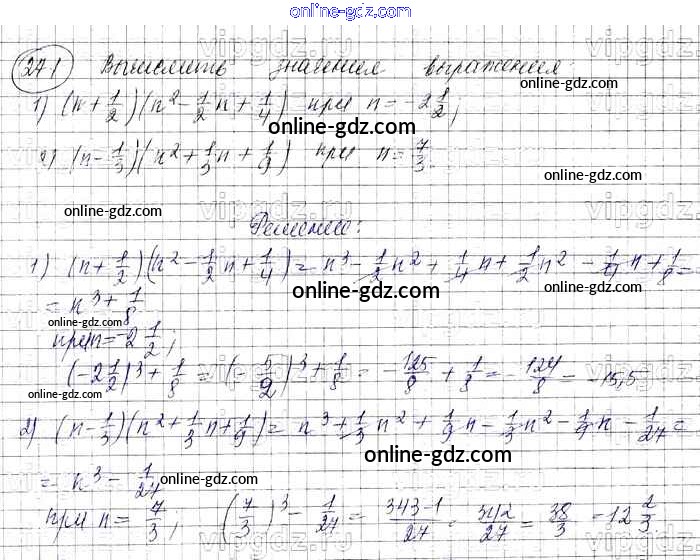 online-gdz.com
vipgdz.ru
271 Вычислить значения выражения
1) (n + 1/2)(n² - 1/2 n + 1/4) при n = -2 1/2;
online-gdz.com
2) (n - 1/3)(n² + 1/3 n + 1/9) при n = 7/3.
online-gdz.com
online-gdz.com
Решение:
1) (n + 1/2)(n² - 1/2 n + 1/4) = n³ - 1/2 n² + 1/4 n + 1/2 n² - 1/4 n + 1/8 =
online-gdz.com
= n³ + 1/8
online-gdz.com
при n = -2 1/2;
(-2 1/2)³ + 1/8 = (- 5/2)³ + 1/8 = - 125/8 + 1/8 = - 124/8 = -15,5
online-gdz.com
online-gdz.com
2) (n - 1/3)(n² + 1/3 n + 1/9) = n³ + 1/3 n² + 1/9 n - 1/3 n² - 1/9 n - 1/27 =
online-gdz.com
= n³ - 1/27
online-gdz.com
при n = 7/3; (7/3)³ - 1/27 = 343-1/27 = 342/27 = 38/3 = 12 2/3.
online-gdz.com